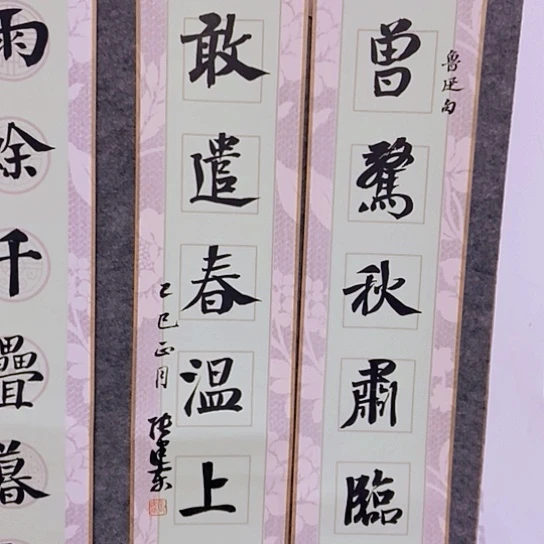 魯迅句
曾驚秋肅臨
敢遣春温上
乙巳正月
雨餘千疊暮